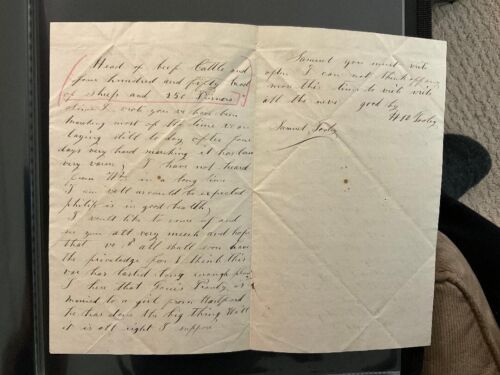 Head of beef Cattle and
four hundred and fifty head
of sheep and 250 Prisners
since I wrote you we have been
marching most of the time we are
laying still to day after four
days very hard marching it has been
very warm, I have not heard
from Wm in a long time
I am well as could be expected
philip is in good health,
I would like to come up and
see you all very much and hope
that we all shall soon have
the priviledge for I think this
war has lasted long enough
I hear that Hanford is
married to a girl from Hartford
he has done the big Thing Well
it is all right I suppose
Samuel you must write
often I can not think of any
more this time so write write
all the news good by
Samuel